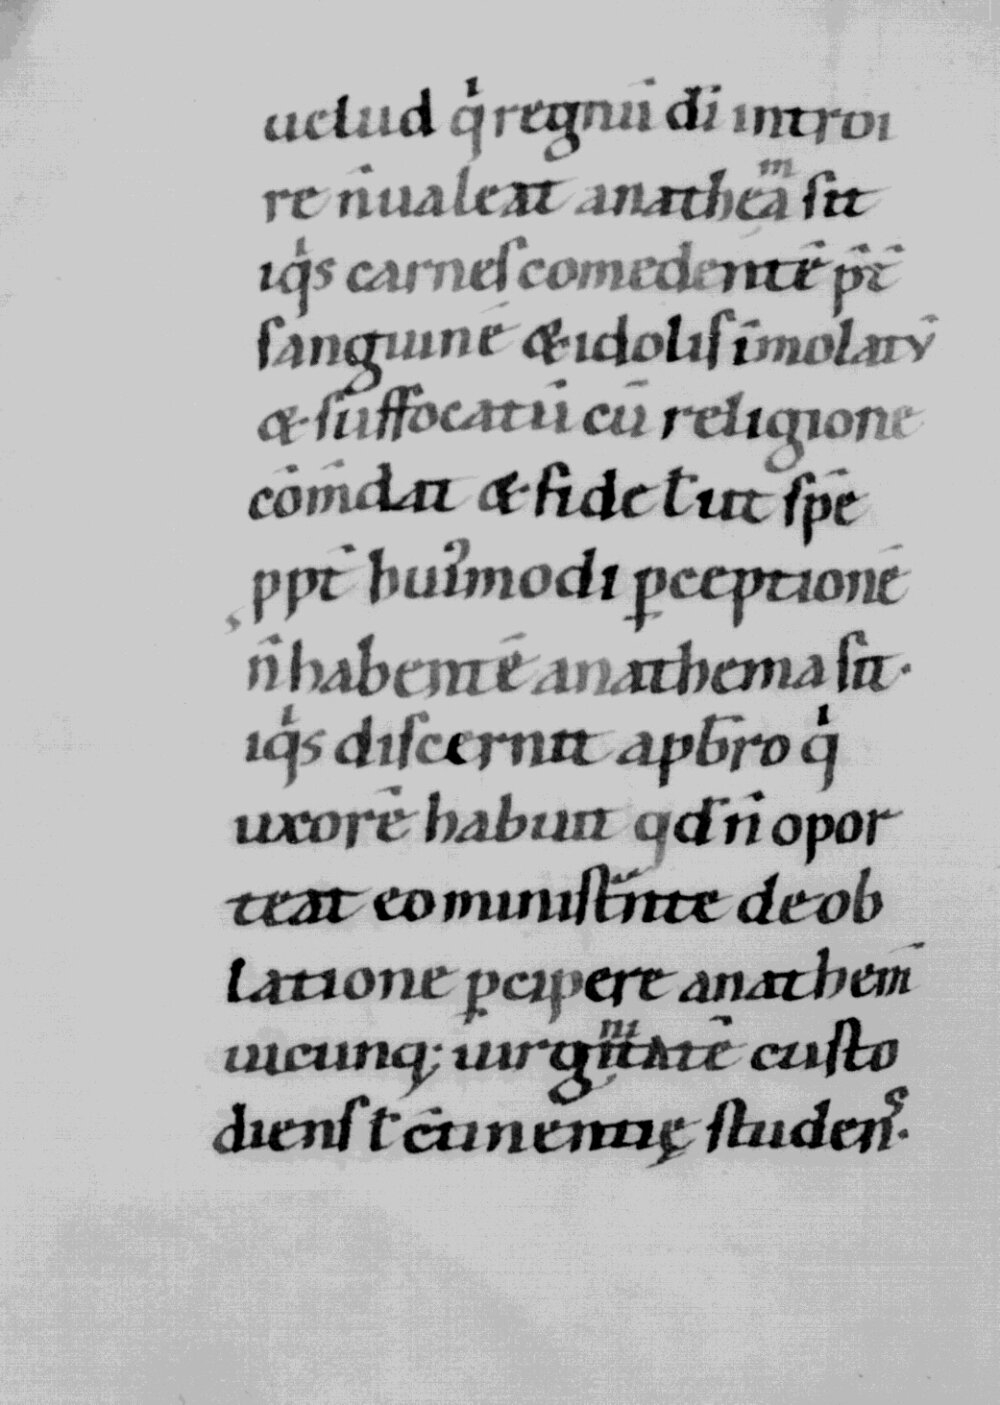 uelud q̇ regnū dī introi
re n̄ ualeat anatheᵐa sit
iq̇s carnes comedentē p̄t̄
sanguinē & idolis īmolatū
& suffocatū cū religione
cōm̄dat & fide t̄ ut spē
ppt̄ huiꝰmodi ꝑceptionē
n̄ habentē anathema sit·
iq̇s discernit a pb̄ro q̇
uxorē habuit qd̄ n̄ opor
teat eo minist̄nte de ob
latione ꝑcipere anathem̄
uicunq; uirgiⁿitatē custo
diens t̄ c̄tinentię studens·